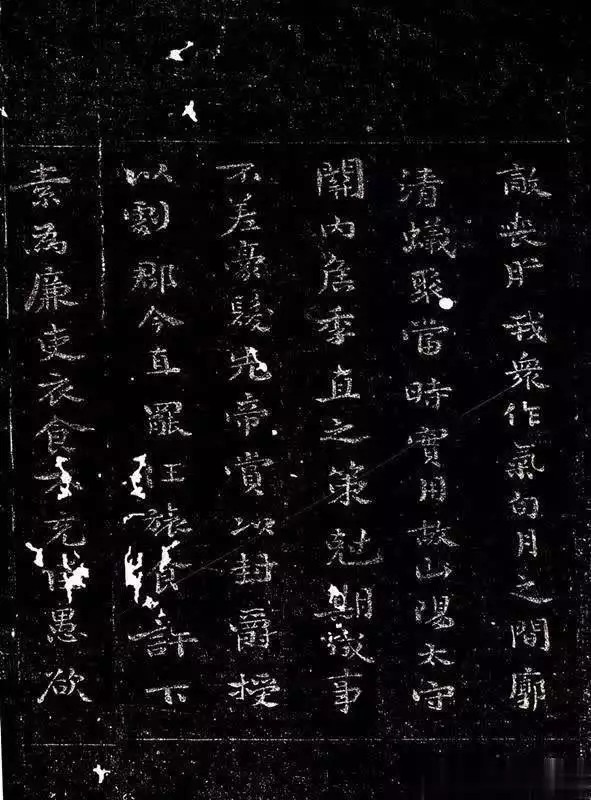 敵喪膽我眾作氣旬月之間廓
清蟻聚當時實用故山陽太守
關內侯季直之策剋期成事
不差豪髮先帝賞以封爵授
以劇郡今直罷任旅食許下
素為廉吏衣食不充臣愚欲